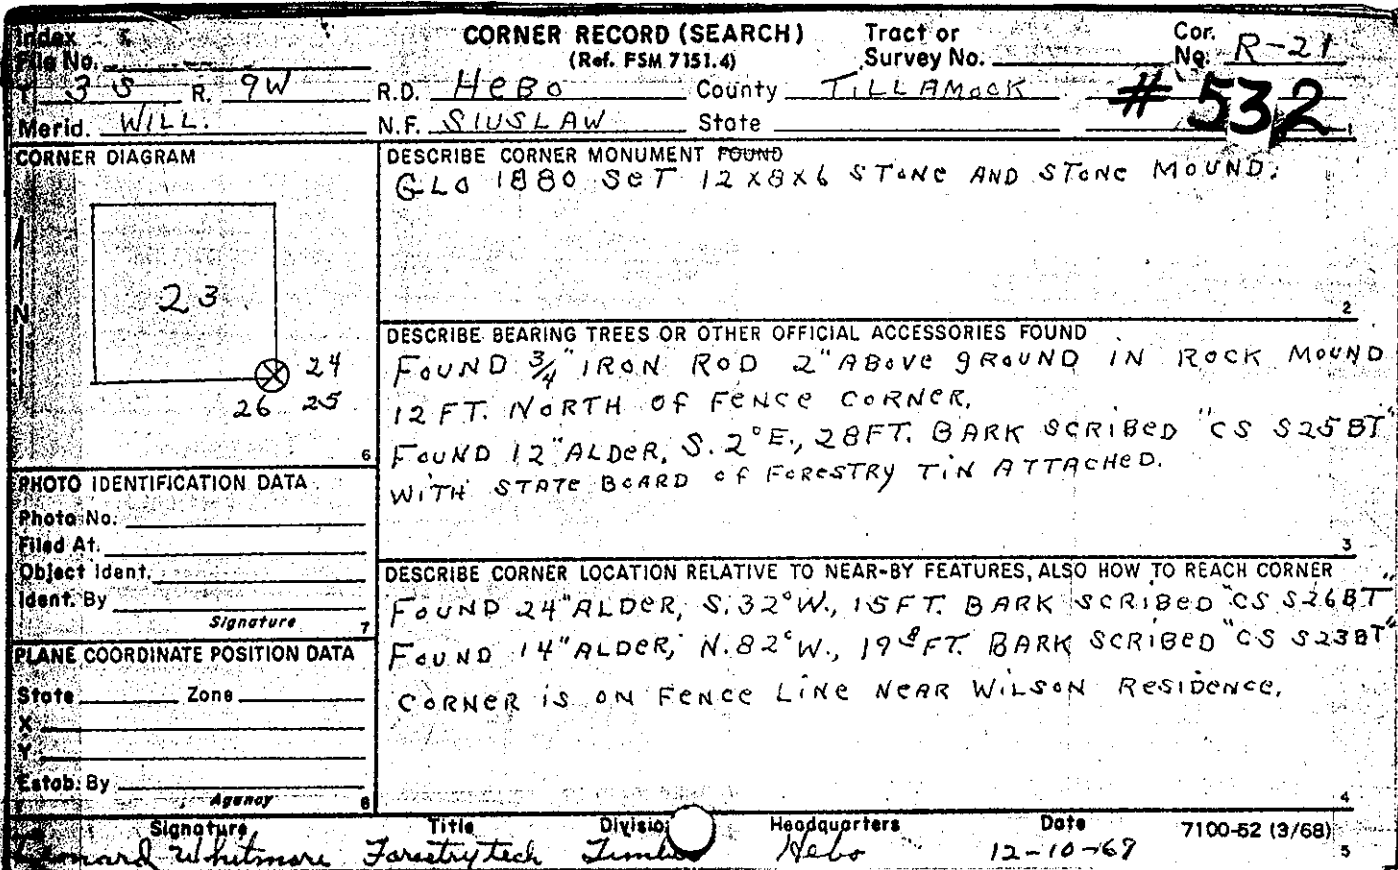 Index CORNER RECORD (SEARCH) Tract or Cor.
File No. (Ref. FSM 7151.4) Survey No. No. R-21
T 3 S R. 9W R.D. HEBO County TILLAMOOK # 532
Merid. WILL. N.F. SIUSLAW State 1
CORNER DIAGRAM
N
23
24
26 25
6
DESCRIBE CORNER MONUMENT FOUND
GLO 1880 SET 12X8X6 STONE AND STONE MOUND.
2
DESCRIBE BEARING TREES OR OTHER OFFICIAL ACCESSORIES FOUND
FOUND 3/4" IRON ROD 2" ABOVE GROUND IN ROCK MOUND
12 FT. NORTH OF FENCE CORNER.
FOUND 12" ALDER, S. 2° E., 28 FT. BARK SCRIBED "CS S25BT"
WITH STATE BOARD OF FORESTRY TIN ATTACHED.
3
PHOTO IDENTIFICATION DATA
Photo No.
Filed At.
Object Ident.
Ident. By
Signature 7
DESCRIBE CORNER LOCATION RELATIVE TO NEAR-BY FEATURES, ALSO HOW TO REACH CORNER
FOUND 24" ALDER, S. 32° W., 15 FT. BARK SCRIBED "CS S26BT"
FOUND 14" ALDER, N. 82° W., 19 FT. BARK SCRIBED "CS S23BT"
CORNER IS ON FENCE LINE NEAR WILSON RESIDENCE.
4
PLANE COORDINATE POSITION DATA
State Zone
X
Y
Estab. By
Agency 8
Signature Title Division Headquarters Date 7100-52 (3/68)
Whitmore Forestry tech Timber Hebo 12-10-69 5